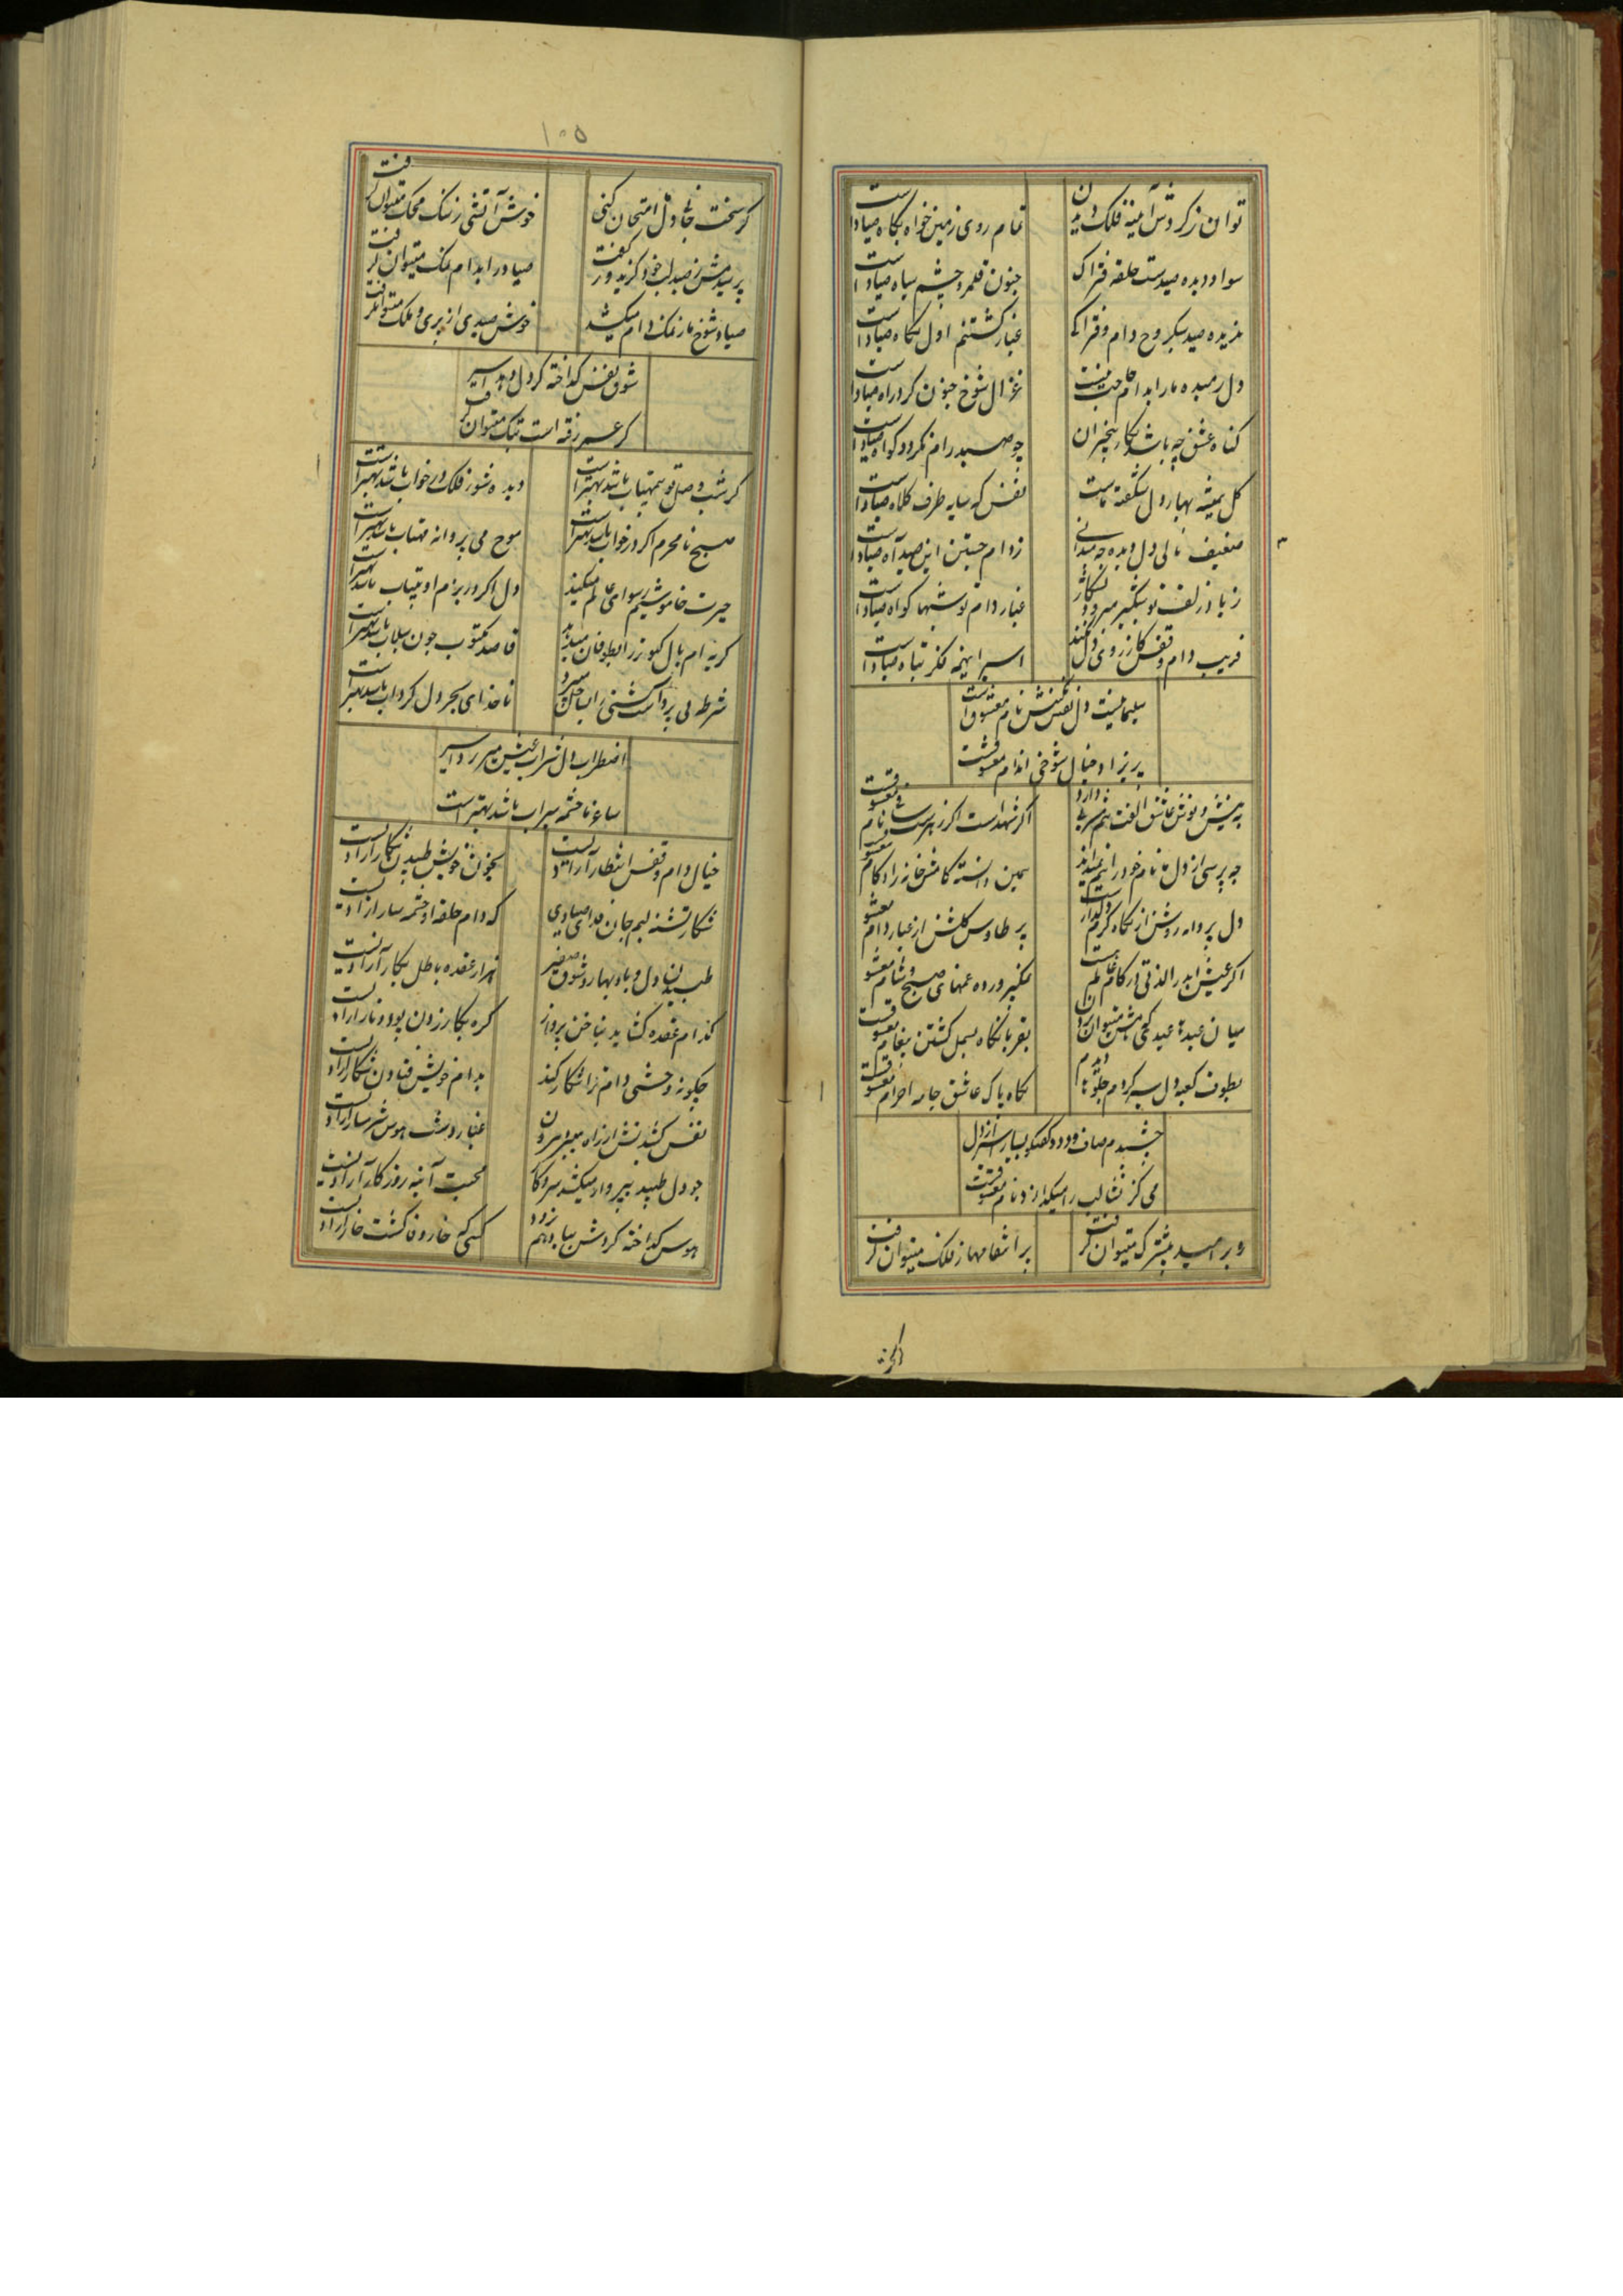 توان ز کردش آینه فلک دیدن
تمام روی زمین خوابگاه صیادست
سواد دیده صیدست حلقه فتراک
جنون قلمرو چشم سیاه صیادست
غبار کشتنم اول نگاه صیادست
دل رمیده ما را بدام حاجت نیست
غزال شوخ جنون کرد راه صیادست
کناه عشق چه باشد شکار بیخبران
چو صید رام نکردد کواه صیادست
کل همیشه بهار دل شکفته ماست
نفس که سایه طرف کلاه صیادست
ضعیف نالی دل دیده چه میدانی
ز دام جستن این صید آه صیادست
غبار دام تو شبها کواه صیادست
فریب دام و قفس کار زوی دل نکند
اسیر اینهمه فکر تباه صیادست
سلیمانیست دل نقش نکینش نام معشوقست
پریزاد خیال شوخی اندام معشوقست
به نیش و نوش عاشق الفت هم مشربی دارد
اگر شهدست اگر زهرست
چه پرسی از دل ما نام خود را هم نمیداند
همین دانسته کامش خانه زاد کام معشوقست
دل پروانه روشن از نگاه گرم دلدارست
پر طاوس کلشن از غبار دام معشوقست
اگر عیش ابد را لذتی در کام عالم هست
نمک پرورده غمهای صبح و شام معشوقست
بقربان نگاه بسمل کشتن پیغام معشوقست
بطوف کعبه دل سیر کردم جلوها دیدم
نگاه پاک عاشق جامه احرام معشوقست
چشیدم صاف و درد گفتگو بسیار اسیر از دل
می کز نشا لب را میگدازد نام معشوقست
دیر امید مشترک میتوان گرفت
پر انتقامها ز فلک میتوان گرفت
کر سخت
۱۰۵
کر سخت جانی دل امتحان کنی
خوش آتشی ز سنگ محک میتوان گرفت
پرسیدمش ز صید لب خود گزید و گفت
صیاد را بدام نمک میتوان گرفت
صیاد شوخ ما ز نمک دام میکشد
خوش صیدی از پری و ملک میتوان گرفت
شوق نفس کداخته کرد دل اسیر
کر عمر رفته است بتک میتوان گرفت
کر شب وصل تو بیمهتاب باشد بهترست
دیده شور فلک در خواب باشد بهترست
صبح نامحرم اگر در خواب باشد بهترست
موج می پروانه مهتاب باشد بهترست
حیرت خاموشیم رسوای عالم میکند
دل اگر در بزم او بیتاب باشد بهترست
کریه ام بال کبوتر را بطوفان میدهد
قاصد مکتوب چون سیلاب باشد بهترست
شرطه بی پرواست کشتی را بساحل میبرد
ناخدای بحر دل کرداب باشد بهترست
اضطراب دل شراب عیش میریزد اسیر
ساغر ما چشمه سیراب باشد بهترست
خیال دام و قفس انتظار آزادیست
بخون خویش طپیدن شکار آزادیست
شکار تشنه لبم جان فدای صیادی
که دام حلقه او چشمه سار آزادیست
طپیدن دل و باد بهار و شوق صفیر
هزار عقده باطل بکار آزادیست
کدام عقده کشاید بناخن پرواز
کره بکار زدن پود و تار آزادیست
چکونه وحشی دام ترا شکار کند
بدام خویش فتادن شکار آزادیست
نفس کشیدنش از راه میبرد بیرون
غبار دشت هوس شرمسار آزادیست
چو دل طپید
محبت آینه روزگار آزادیست
هوس کداخته کردش
کسی که خار وفا کشت خار آزادیست